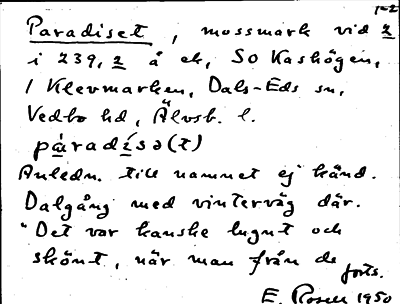 1=2
Paradiset, mossmark vid 2
i 239, 2 å ek, SO Kashögen,
/ Klevmarken, Dals-Eds sn,
Vedbo hd, Älvsb. l.
páradísə(t)
Anledn. till namnet ej känd.
Dalgång med vinterväg där.
"Det var kanske lugnt och
skönt, när man från de
forts.
E. Rosell 1950